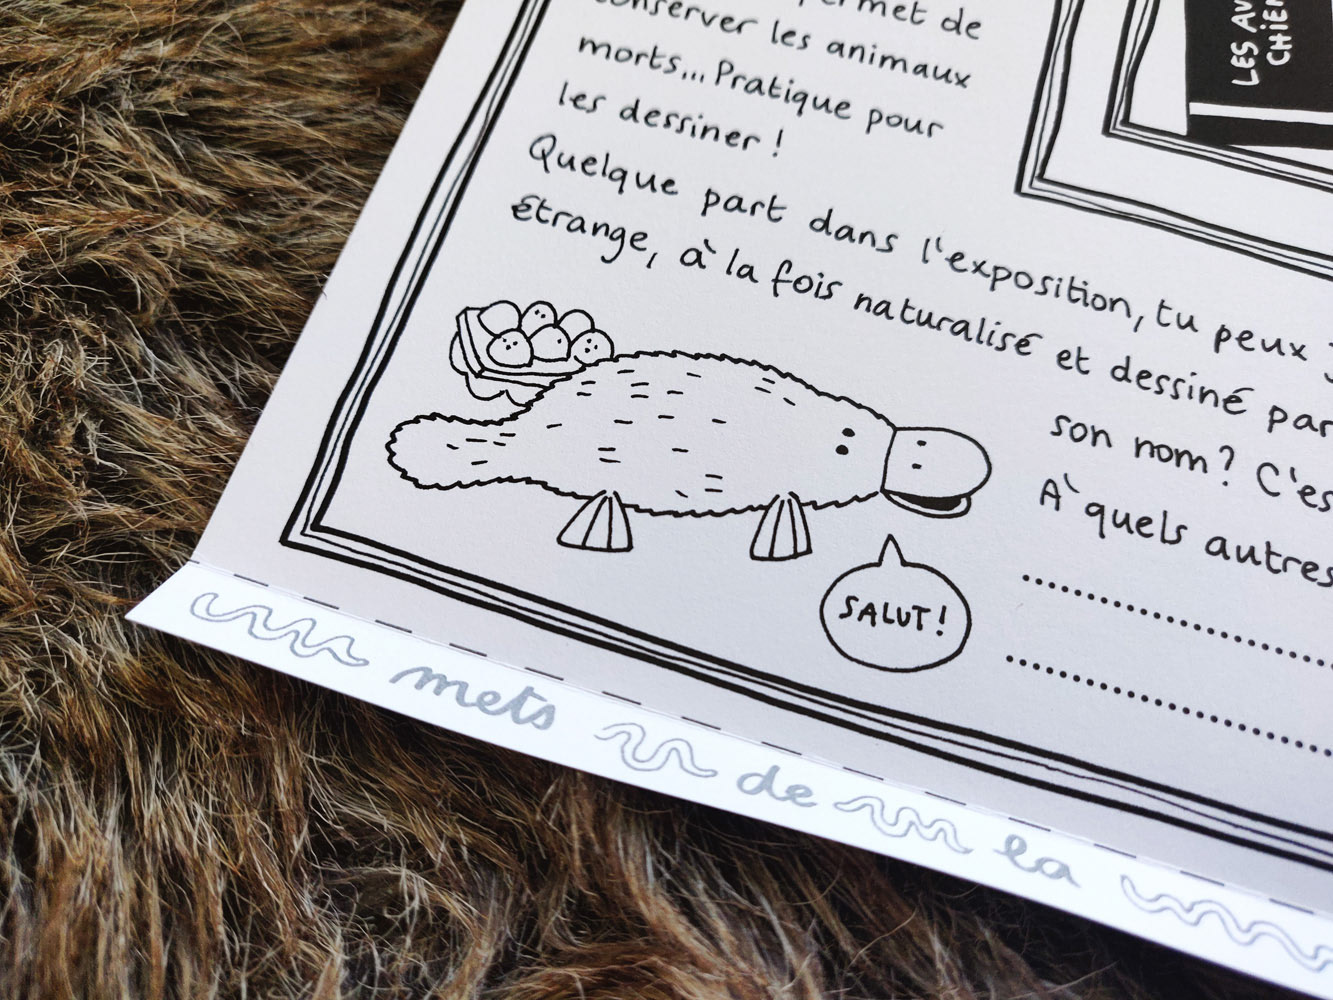 permet de
conserver les animaux
morts... Pratique pour
les dessiner !
Quelque part dans l'exposition, tu peux
étrange, à la fois naturalisé et dessiné par
son nom ? C'es
À quels autres
SALUT !
LES AV
CHIEN
mets de la